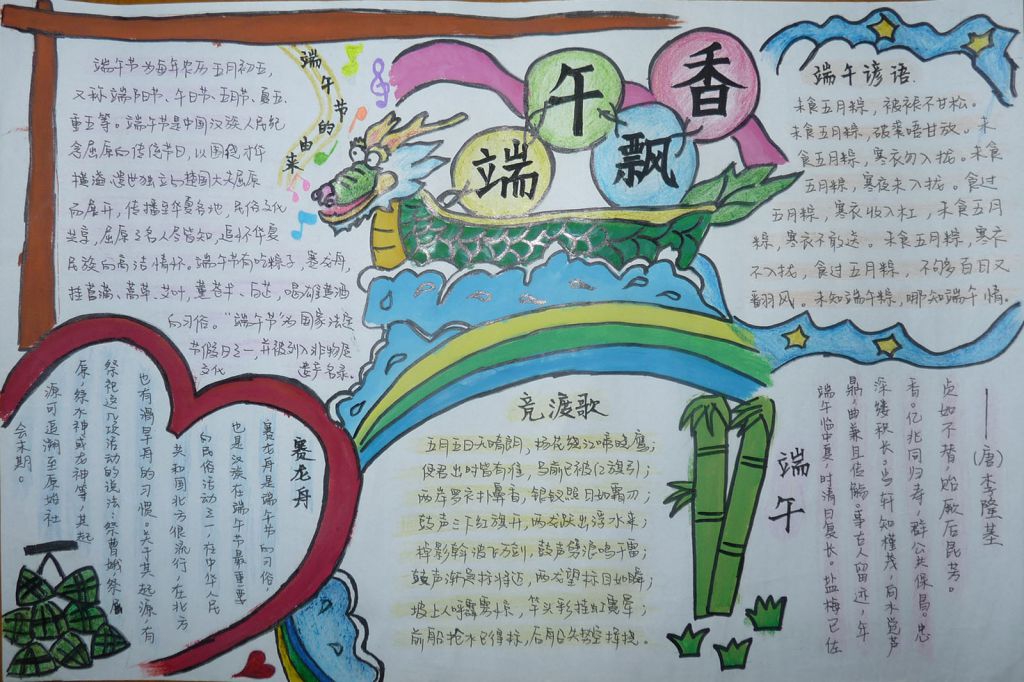 端午飘香
端午节的由来
端午节为每年农历五月初五,
又称端阳节、午日节、五月节、夏五、
重五等。端午节是中国汉族人民纪
念屈原的传统节日,以围绕才华
横溢、遗世独立的楚国大夫屈原
而展开,传播至华夏各地,民俗文化
共享,屈原之名人尽皆知,追怀华夏
民族的高洁情怀。端午节有吃粽子,赛龙舟,
挂菖蒲、蒿草、艾叶,薰苍术、白芷,喝雄黄酒
的习俗。“端午节”为国家法定
节假日之一,并被列入非物质
文化遗产名录。
端午谚语
未食五月粽,被褥不甘松。
未食五月粽,破裘唔甘放。未
食五月粽,寒衣勿入拢。未食
五月粽,寒夜未入拢。食过
五月粽,寒衣收入杠,未食五月
粽,寒衣不敢送。未食五月粽,寒衣
不入拢,食过五月粽,不够百日又
翻风。未知端午粽,哪知端午情。
赛龙舟
赛龙舟是端午节的习俗,
也是汉族在端午节最重要
的民俗活动之一,在中华人民
共和国北方很流行,在北方
也有滑旱舟的习惯。关于其起源,有
祭祀这几项活动的说法,祭曹娥,祭屈
原,祭水神或龙神等,其起
源可追溯至原始社
会末期。
竞渡歌
五月五日天晴朗,杨花绕江啼晓鹰;
使君出时皆有准,马前已被江旗引;
两岸罗衣扑鼻香,银钗照日如霜刃;
鼓声三下红旗开,两龙跃出浮水来;
棹影斡波飞万剑,鼓声劈浪鸣千雷;
鼓声渐急标将近,两龙望标目如瞬;
坡上人呼霹雳惊,竿头彩挂虹霓晕;
前船抢水已得标,后船失势空挥挠。
端午
端午临中夏,时清日复长。盐梅已佐
鼎,曲糵且传觞。事古人留迹,年
深缕积长。当轩知槿茂,向水觉芦
香。亿兆同归寿,群公共保昌。忠
贞如不替,贻厥后昆芳。
——(唐)李隆基